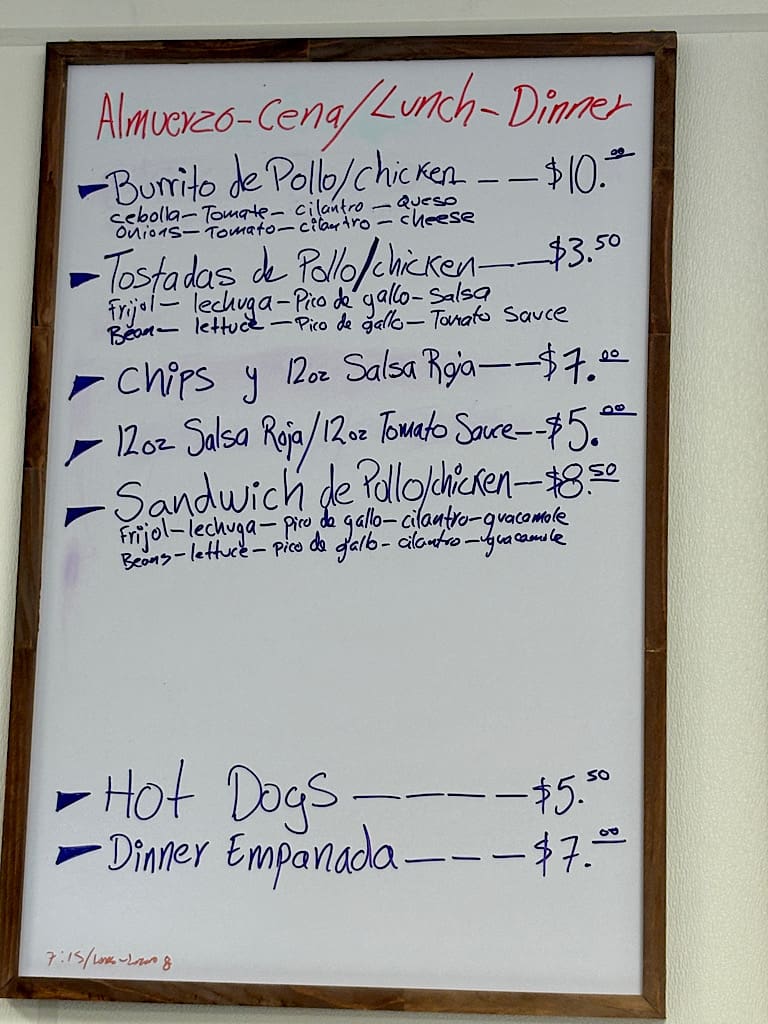 Almuerzo-Cena/Lunch-Dinner
Burrito de Pollo/chicken -- $10.00
cebolla-Tomate-cilantro-Queso
Onions-Tomato-cilantro-cheese
Tostadas de Pollo/chicken -- $3.50
Frijol-lechuga-Pico de gallo-Salsa
Bean-lettuce-Pico de gallo-Tomato Sauce
Chips y 12oz Salsa Roja -- $7.00
12oz Salsa Roja/12oz Tomato Sauce -- $5.00
Sandwich de Pollo/chicken - $8.50
Frijol-lechuga-pico de gallo-cilantro-guacamole
Beans-lettuce-pico de gallo-cilantro-guacamole
Hot Dogs ---- $5.50
Dinner Empanada --- $7.00
7:15/